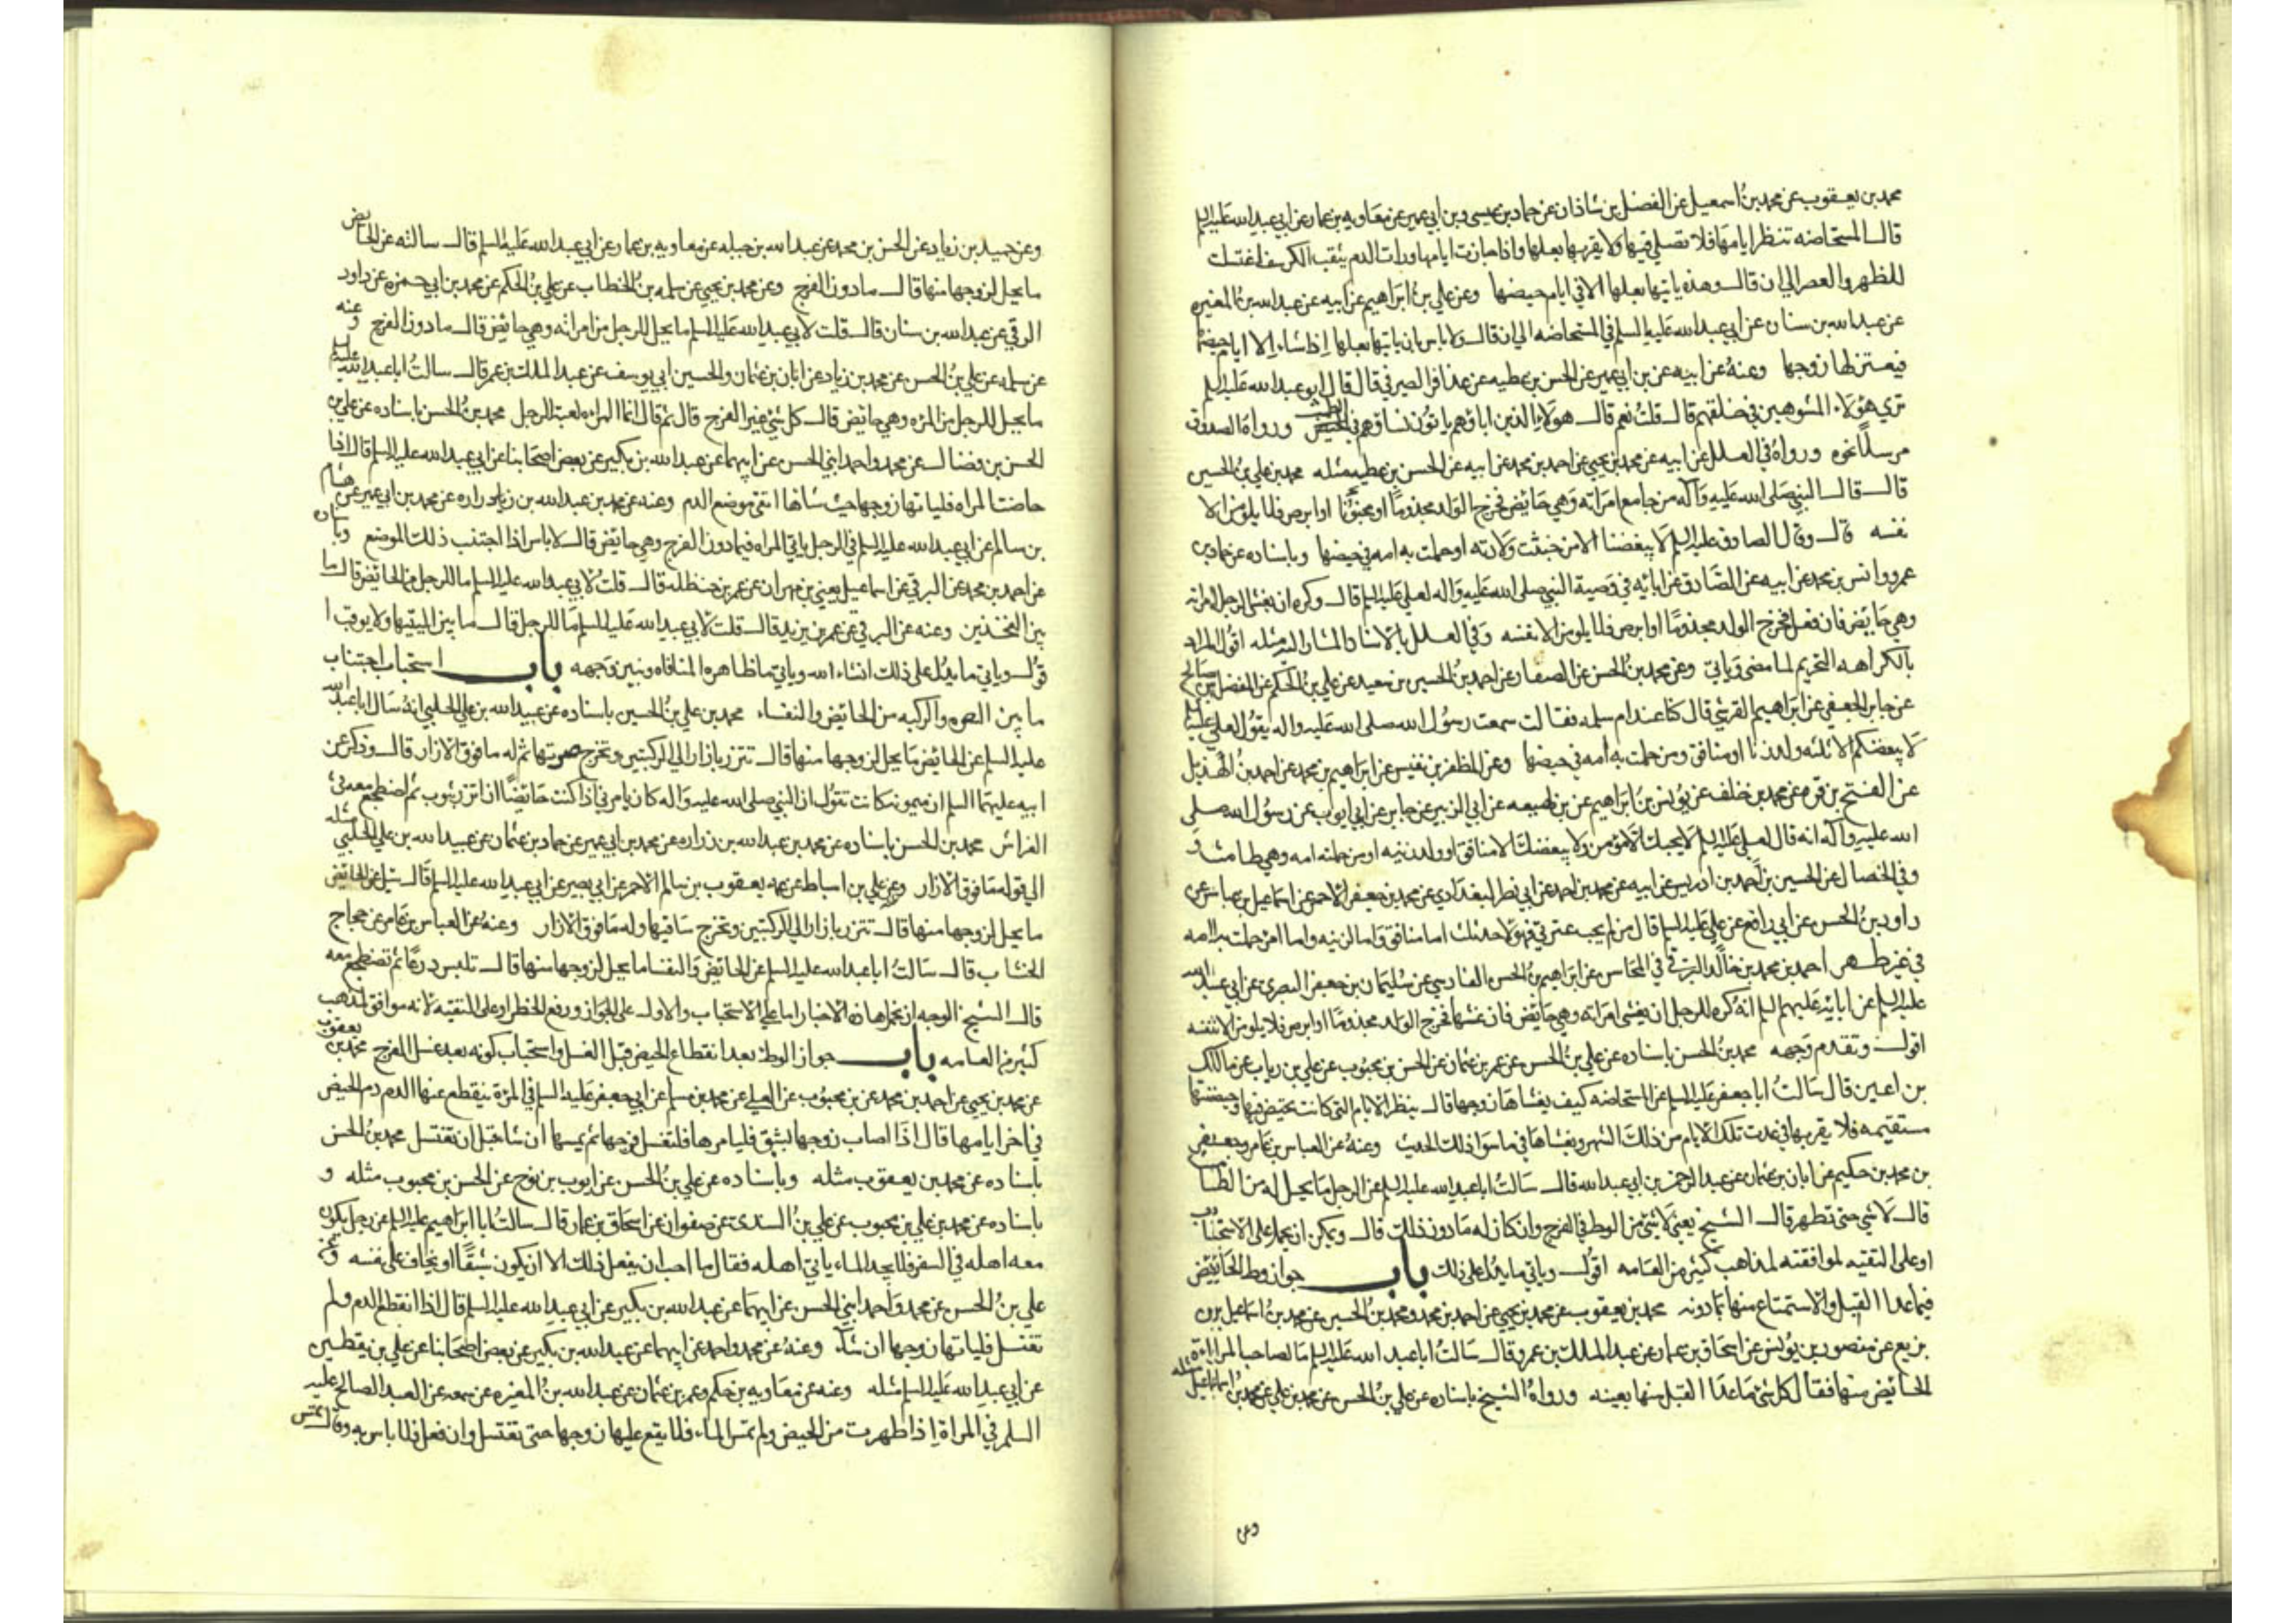 محمد بن يعقوب عن محمد بن اسمعيل عن الفضل بن شاذان عن حماد بن عيسى وبن ابي عمير عن معاويه بن عمار عن ابي عبد الله عليه السلم
قال المستحاضه تنظر ايامها فلا تصلي فيها ولا يقربها بعلها واذا جازت ايامها ورات الدم يثقب الكرسف اغتسلت
للظهر والعصر الي ان قال وهذه ياتيها بعلها الا في ايام حيضها وعن علي بن ابراهيم عن ابيه عن عبد الله بن المغيره
عن عبد الله بن سنان عن ابي عبد الله عليه السلم في المستحاضه الي ان قال ولا باس بان ياتيها بعلها اذا شاء الا ايام حيضها
فيعتزلها زوجها وعنه عن ابيه عن بن ابي عمير عن الحسن بن عطيه عن عذافر الصيرفي قال قال ابو عبد الله عليه السلم
تري هؤلاء المشوهين في خلقهم قال قلت نعم قال هولاء الذين اباؤهم ياتون نساؤهم في الطمث ورواه الصدوق
مرسلا نحوه ورواه في العلل عن ابيه عن محمد بن يحيي عن احمد بن محمد عن ابيه عن الحسن بن عطيه مثله محمد بن علي بن الحسين
قال قال النبي صلى الله عليه وآله من جامع امراته وهي حايض فخرج الولد مجذوما او ابرص فلا يلومن الا
نفسه قال وقال الصادق عليه السلم لا يبغضنا الا من خبثت ولادته او حملت به امه في حيضها وباسناده عن حماد بن
عمرو وانس بن محمد عن ابيه عن الصادق عن ابائه في وصية النبي صلى الله عليه واله لعلي عليه السلم قال وكره ان يغشى الرجل امراته
وهي حايض فان فعل فخرج الولد مجذوما او ابرص فلا يلومن الا نفسه وفي العلل بالاسناد المشار اليه مثله اقول المراد
بالكراهه التحريم لما مضى وياتي وعن محمد بن الحسن عن الصفار عن احمد بن الحسين بن سعيد عن علي بن الحكم عن المفضل بن صالح
عن جابر الجعفي عن ابراهيم القرشي قال كنا عند ام سلمه فقالت سمعت رسول الله صلى الله عليه واله يقول لعلي عليه السلم
لا يبغضكم الا ثلثه ولد زنا او منافق ومن حملت به امه في حيضها وعن المظفر بن نفيس عن ابراهيم بن محمد عن احمد بن الهذيل
عن الفتح بن قره عن محمد بن خلف عن يونس بن ابراهيم عن بن لهيعه عن ابي الزبير عن جابر عن ابي ايوب عن رسول الله صلى
الله عليه وآله انه قال لعلي عليه السلم لا يحبك الا مؤمن ولا يبغضك الا منافق او ولد زنيه او من حملته امه وهي طامث
وفي الخصال عن الحسين بن احمد بن ادريس عن ابيه عن محمد بن احمد عن ابي نصر البغدادي عن محمد بن جعفر الاحمر عن اسماعيل بن عباس عن
داود بن الحسن عن ابي رافع عن علي عليه السلم قال من لم يحب عترتي فهو لاحد ثلث اما منافق واما لزنيه واما امرء حملت به امه
في غير طهر احمد بن محمد بن خالد البرقي في المحاسن عن ابراهيم بن الحسن الفارسي عن سليمان بن جعفر البصري عن ابي عبد الله
عليه السلم عن ابائه عليهم السلم انه كره للرجل ان يغشى امراته وهي حايض فان غشها فخرج الولد مجذوما او ابرص فلا يلومن الا نفسه
اقول وتقدم وجهه محمد بن الحسن باسناده عن علي بن الحسن عن عمر بن عثمان عن الحسن بن محبوب عن علي بن رياب عن مالك
بن اعين قال سالت ابا جعفر عليه السلم عن المستحاضه كيف يغشاها زوجها قال ينظر الايام التي كانت تحيض فيها وحيضتها
مستقيمه فلا يقربها في عدت تلك الايام من ذلك الشهر ويغشاها في ما سوا ذلك الحديث وعنه عن العباس بن عامر وجعفر
بن محمد بن حكيم عن ابان بن عثمان عن عبد الرحمن بن ابي عبد الله قال سالت ابا عبد الله عليه السلم عن الرجل ما يحل له من الطامث
قال لا شي حتى تطهر قال الشيخ يعني لا شي من الوطي في الفرج وان كان له ما دون ذلك قال ويمكن ان يحمل على الاستحباب
او على التقيه لموافقته لمذاهب كثير من العامه اقول وياتي ما يدل على ذلك باب جواز وطي الحايض
فيما عدا القبل والاستمتاع منها بما دونه محمد بن يعقوب عن محمد بن يحيي عن احمد بن محمد ومحمد بن الحسين عن محمد بن اسماعيل بن
بزيع عن منصور بن يونس عن اسحاق بن عمار عن عبد الملك بن عمرو قال سالت ابا عبد الله عليه السلم ما لصاحب المراءة
الحايض منها فقال كل شي ما عدا القبل منها بعينه ورواه الشيخ باسناده عن علي بن الحسن عن محمد بن علي عن محمد بن اسماعيل مثله
وعن
وعن حميد بن زياد عن الحسن بن محمد عن عبد الله بن جبله عن معاويه بن عمار عن ابي عبد الله عليه السلم قال سالته عن الحايض
ما يحل لزوجها منها قال ما دون الفرج وعن محمد بن يحيي عن سلمه بن الخطاب عن علي بن الحكم عن محمد بن ابي حمزه عن داود
الرقي عن عبد الله بن سنان قال قلت لابي عبد الله عليه السلم ما يحل للرجل من امراته وهي حايض قال ما دون الفرج وعنه
عن سلمه عن علي بن الحسن عن محمد بن زياد عن ابان بن عثمان والحسين ابي يوسف عن عبد الملك بن عمر قال سالت ابا عبد الله عليه السلم
ما يحل للرجل من المرءه وهي حايض قال كل شي غير الفرج قال ثم قال انما المراءه لعبة الرجل محمد بن الحسن باسناده عن علي بن
الحسن بن فضال عن محمد واحمد ابني الحسن عن ابيهما عن عبد الله بن بكير عن بعض اصحابنا عن ابي عبد الله عليه السلم قال اذا
حاضت المراه فلياتها زوجها حيث شا اذا اتقى موضع الدم وعنه عن محمد بن عبد الله بن زراره عن محمد بن ابي عمير عن هشام
بن سالم عن ابي عبد الله عليه السلم في الرجل ياتي المراه فيما دون الفرج وهي حايض قال لا باس اذا اجتنب ذلك الموضع
عن احمد بن محمد عن البرقي عن اسماعيل يعني بن مهران عن عمر بن حنظله قال قلت لابي عبد الله عليه السلم ما للرجل من الحايض قال ما
بين الفخذين وعنه عن البرقي عن عمر بن يزيد قال قلت لابي عبد الله عليه السلم ما للرجل قال ما بين اليتيها ولا يوقب ا
قول وياتي ما يدل على ذلك انشاء الله وياتي ما ظاهره المنافاه ونبين وجهه باب استحباب اجتناب
ما بين السره والركبه من الحايض والنفساء محمد بن علي بن الحسين باسناده عن عبيد الله بن علي الحلبي انه سال ابا عبد الله
عليه السلم عن الحايض ما يحل لزوجها منها قال تتزر بازار الي الركبتين وتخرج سرتها ثم له ما فوق الازار قال وذكر عن
ابيه عليهما السلم ان ميمونه كانت تقول ان النبي صلى الله عليه واله كان يامرني اذا كنت حايضا ان اتزر بثوب ثم اضطجع معه في
الفراش محمد بن الحسن باسناده عن محمد بن عبد الله بن زراره عن محمد بن ابي عمير عن حماد بن عثمان عن عبيد الله بن علي الحلبي مثله
الي قوله ما فوق الازار وعن علي بن اسباط عن عمه يعقوب بن سالم الاحمر عن ابي بصير عن ابي عبد الله عليه السلم قال سئل عن الحايض
ما يحل لزوجها منها قال تتزر بازار الي الركبتين وتخرج ساقيها وله ما فوق الازار وعنه عن العباس بن عامر عن حجاج
الخشاب قال سالت ابا عبد الله عليه السلم عن الحايض والنفسا ما يحل لزوجها منها قال تلبس درعا ثم تضطجع معه
قال الشيخ الوجه ان نحمل هذه الاخبار اما على الاستحباب والاوله على الجواز ورفع الحظر او على التقيه لانه موافق لمذهب
كثير من العامه باب جواز الوطئ بعد انقطاع الحيض قبل الغسل واستحباب كونه بعد غسل الفرج محمد بن يعقوب
عن محمد بن يحيي عن احمد بن محمد عن بن محبوب عن العلا عن محمد بن مسلم عن ابي جعفر عليه السلم في المرءة ينقطع عنها الدم دم الحيض
في اخر ايامها قال اذا اصاب زوجها شبق فليامرها فلتغسل فرجها ثم يمسها ان شا قبل ان تغتسل محمد بن الحسن
باسناده عن محمد بن يعقوب مثله وباسناده عن علي بن الحسن عن ايوب بن نوح عن الحسن بن محبوب مثله و
باسناده عن محمد بن علي بن محبوب عن علي بن السندي عن صفوان عن اسحاق بن عمار قال سالت ابا ابراهيم عليه السلم عن رجل يكون
معه اهله في السفر فلا يجد الماء ياتي اهله فقال ما احب ان يفعل ذلك الا ان يكون شبقا او يخاف على نفسه وعن
علي بن الحسن عن محمد واحمد ابني الحسن عن ابيهما عن عبد الله بن بكير عن ابي عبد الله عليه السلم قال اذا انقطع الدم ولم
تغتسل فلياتها زوجها ان شآء وعنه عن محمد واحمد عن ابيهما عن عبد الله بن بكير عن بعض اصحابنا عن علي بن يقطين
عن ابي عبد الله عليه السلم مثله وعنه عن معاويه بن حكيم وعمر بن عثمان عن عبد الله بن المغيره عن سمعه عن العبد الصالح عليه
السلم في المراة اذا طهرت من الحيض ولم تمس الماء فلا يقع عليها زوجها حتى تغتسل وان فعل فلا باس به وقال تمس